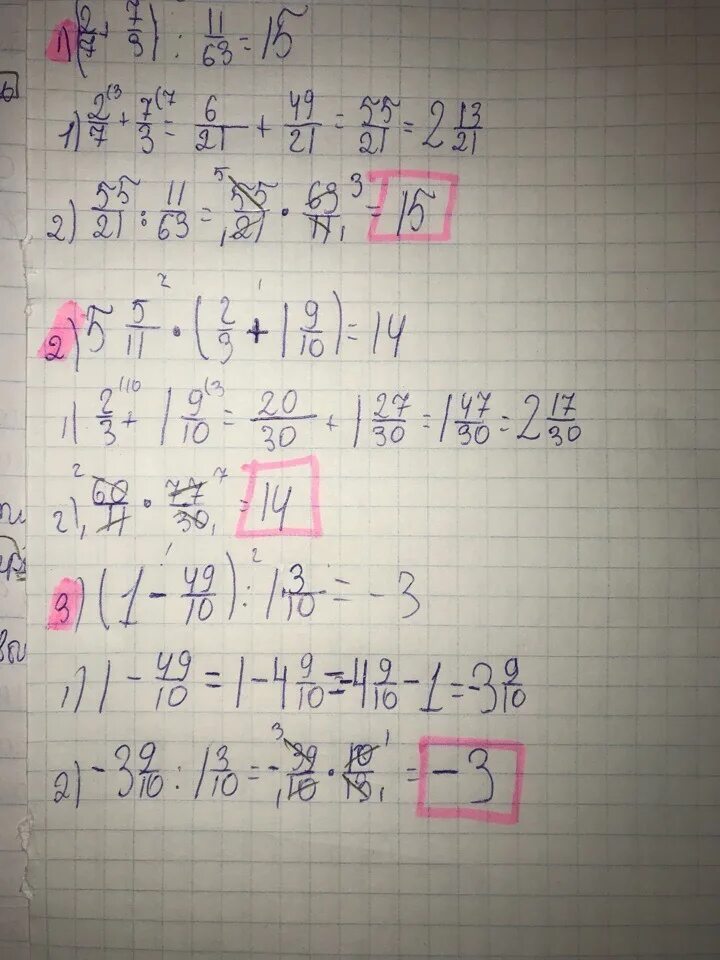 1) (2/7 + 7/3) : 11/63 = 15
1) 2/7 (3 + 7/3 (7 = 6/21 + 49/21 = 55/21 = 2 13/21
2) 55/21 : 11/63 = 5 55/21 1 · 63/11 3 1 = 15
2) 5 5/11 · (2/3 + 1 9/10) = 14
2 1
1) 2/3 (10 + 1 9/10 (3 = 20/30 + 1 27/30 = 1 47/30 = 2 17/30
2) 2 60/11 1 · 77/30 7 1 = 14
3) (1 - 49/10) : 1 3/10 = -3
1 2
1) 1 - 49/10 = 1 - 4 9/10 = -4 9/10 - 1 = -3 9/10
2) -3 9/10 : 1 3/10 = - 3 39/10 1 · 10/13 1 1 = -3